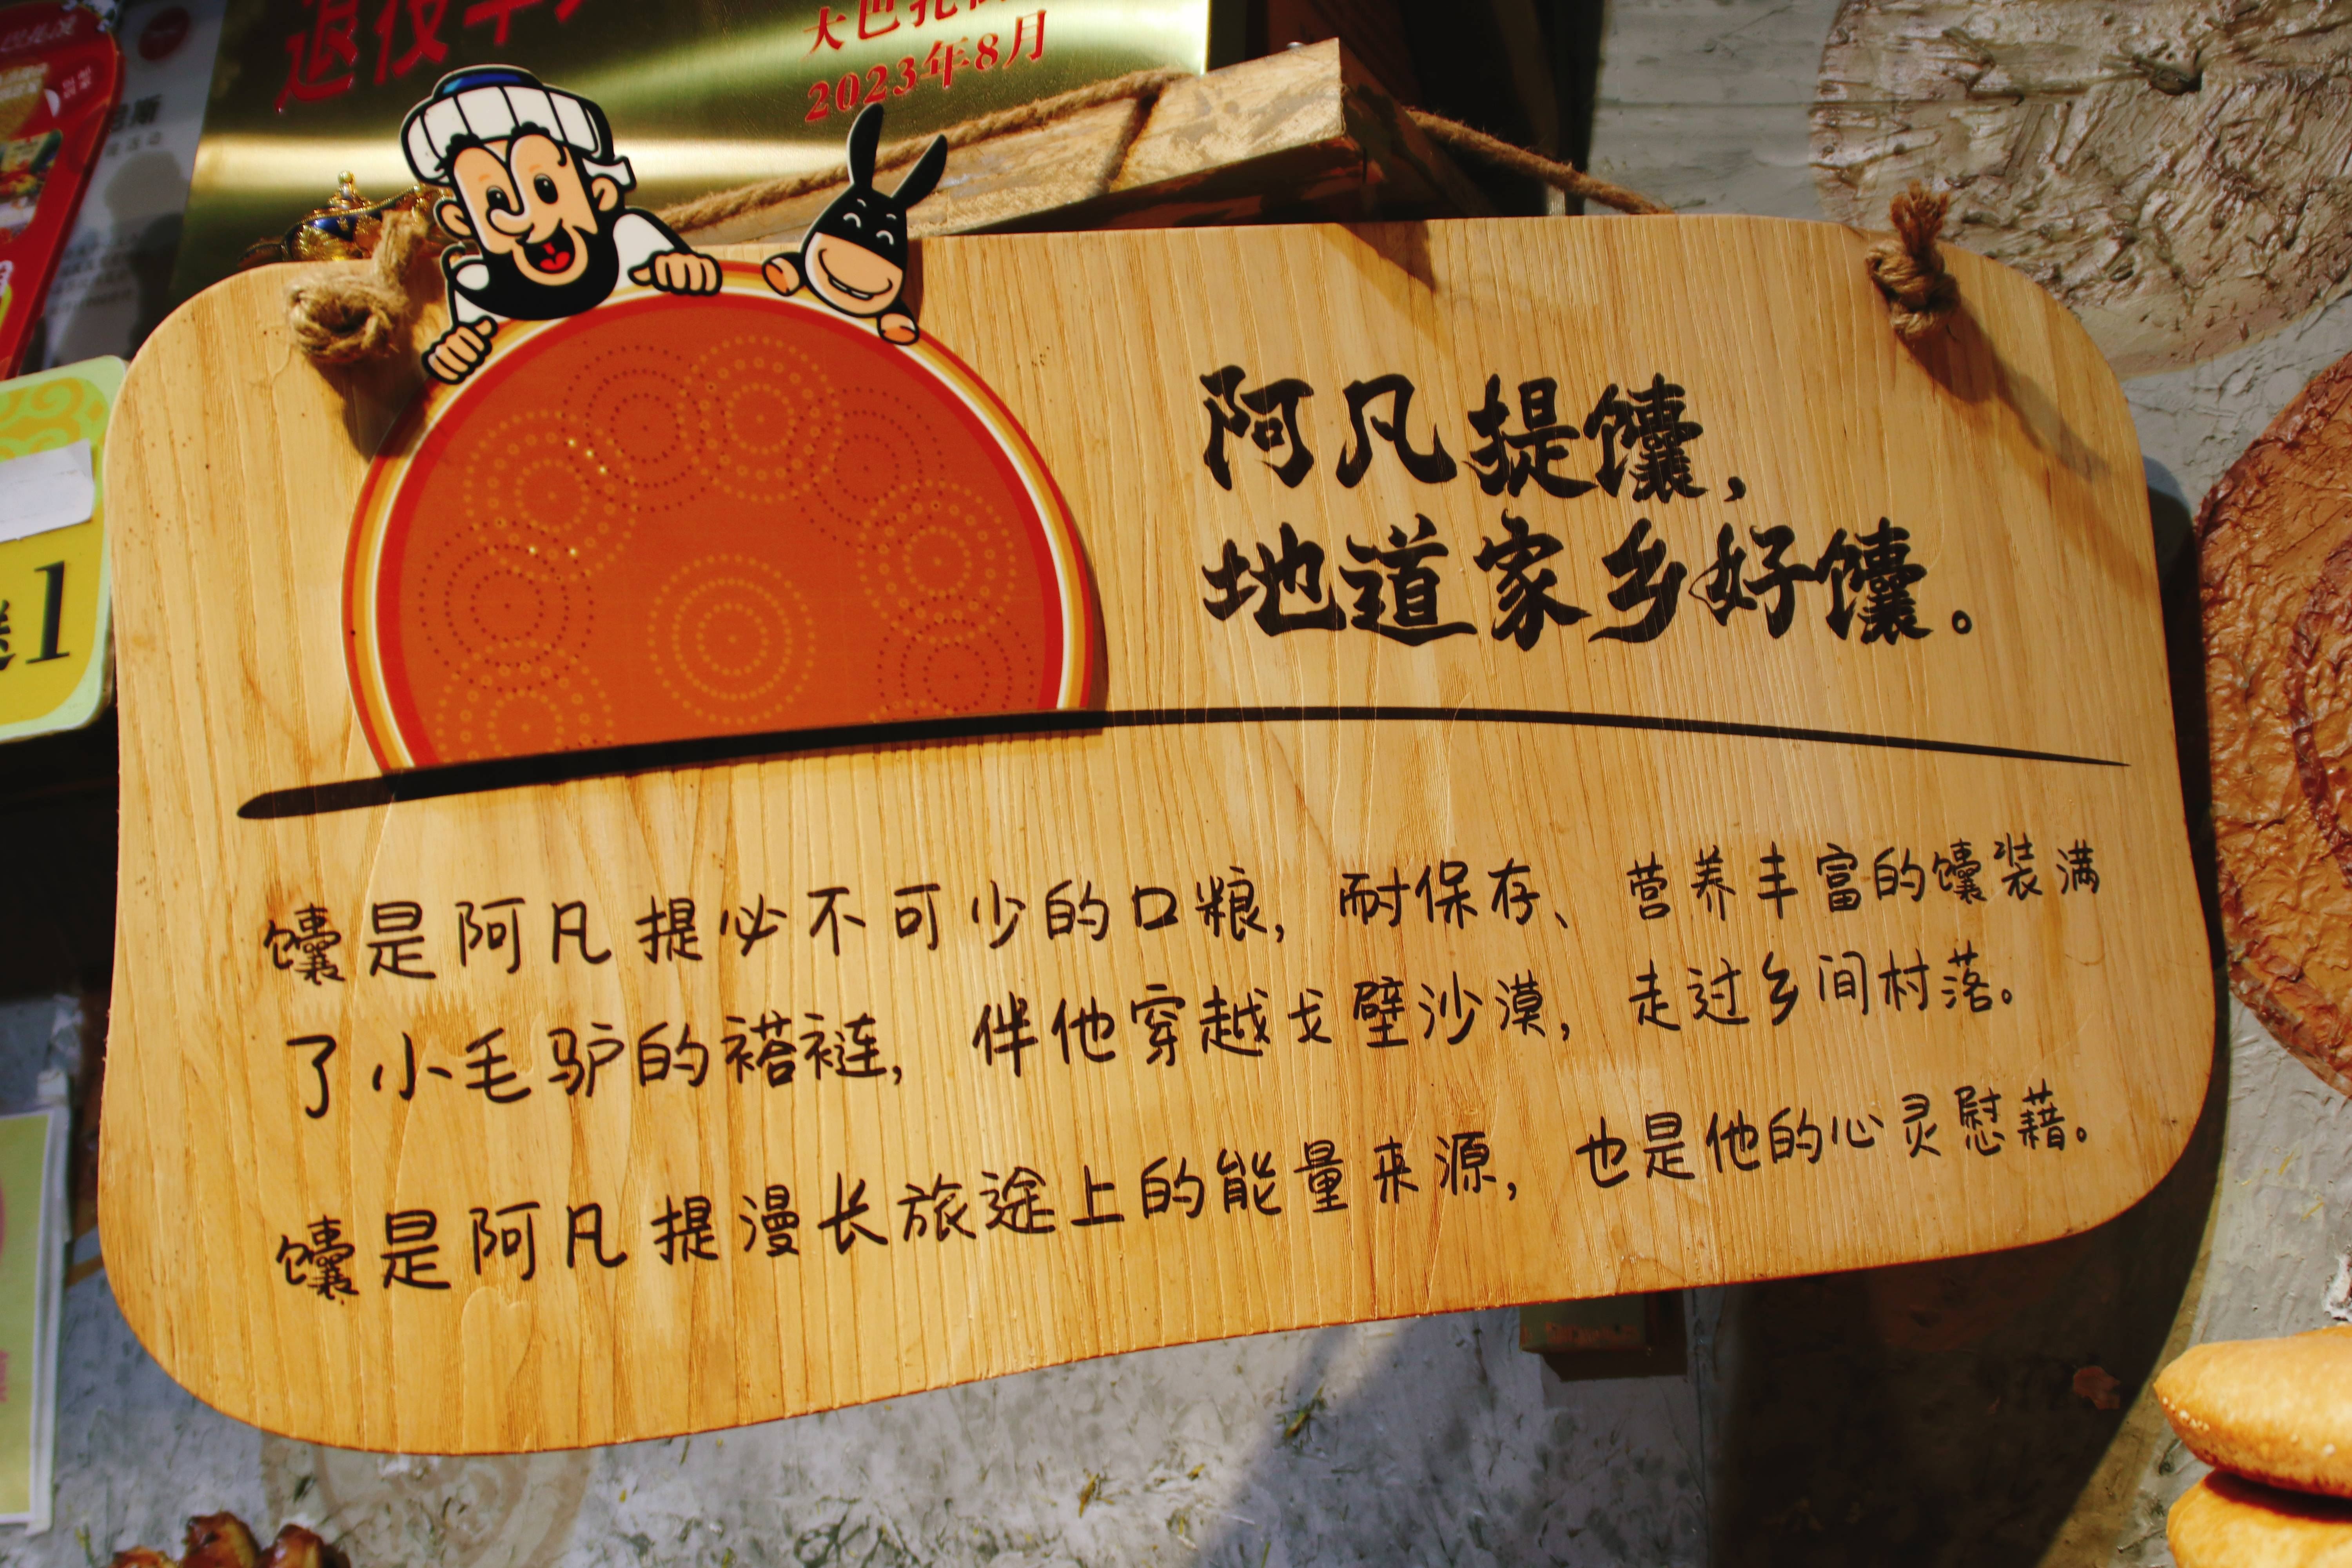 2023年8月
阿凡提馕,
地道家乡好馕。
馕是阿凡提必不可少的口粮,耐保存、营养丰富的馕装满
了小毛驴的褡裢,伴他穿越戈壁沙漠,走过乡间村落。
馕是阿凡提漫长旅途上的能量来源,也是他的心灵慰藉。
1